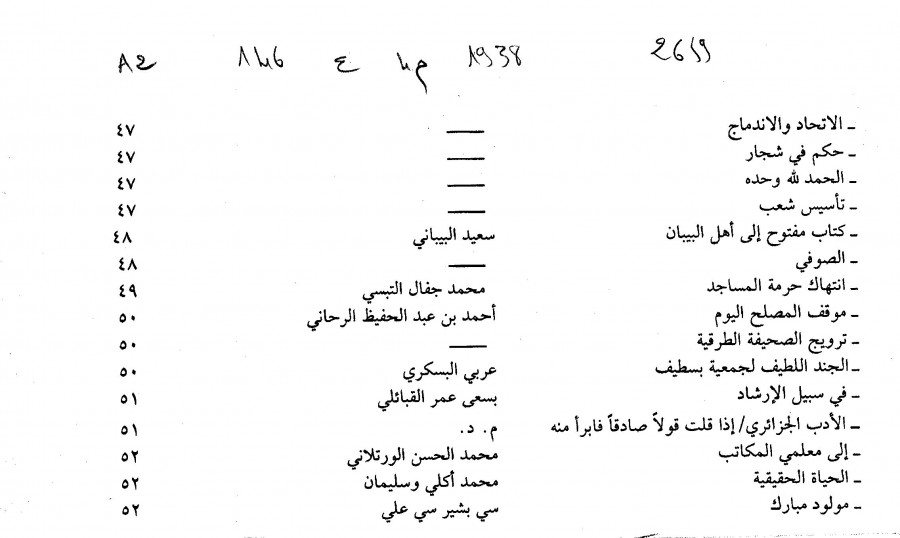 1938 146 A2
ـ الاتحاد والاندماج —— ٤٧
ـ حكم في شجار —— ٤٧
ـ الحمد لله وحده —— ٤٧
ـ تأسيس شعب —— ٤٧
ـ كتاب مفتوح إلى أهل البيبان سعيد البيباني ٤٨
ـ الصوفي —— ٤٨
ـ انتهاك حرمة المساجد محمد جفال التبسي ٤٩
ـ موقف المصلح اليوم أحمد بن عبد الحفيظ الرحاني ٥٠
ـ ترويج الصحيفة الطرقية —— ٥٠
ـ الجند اللطيف لجمعية بسطيف عربي البسكري ٥٠
ـ في سبيل الإرشاد بسعى عمر القبائلي ٥١
ـ الأدب الجزائري/ إذا قلت قولاً صادقاً فابرأ منه م. د. ٥١
ـ إلى معلمي المكاتب محمد الحسن الورتلاني ٥٢
ـ الحياة الحقيقية محمد أكلي وسليمان ٥٢
ـ مولود مبارك سي بشير سي علي ٥٢